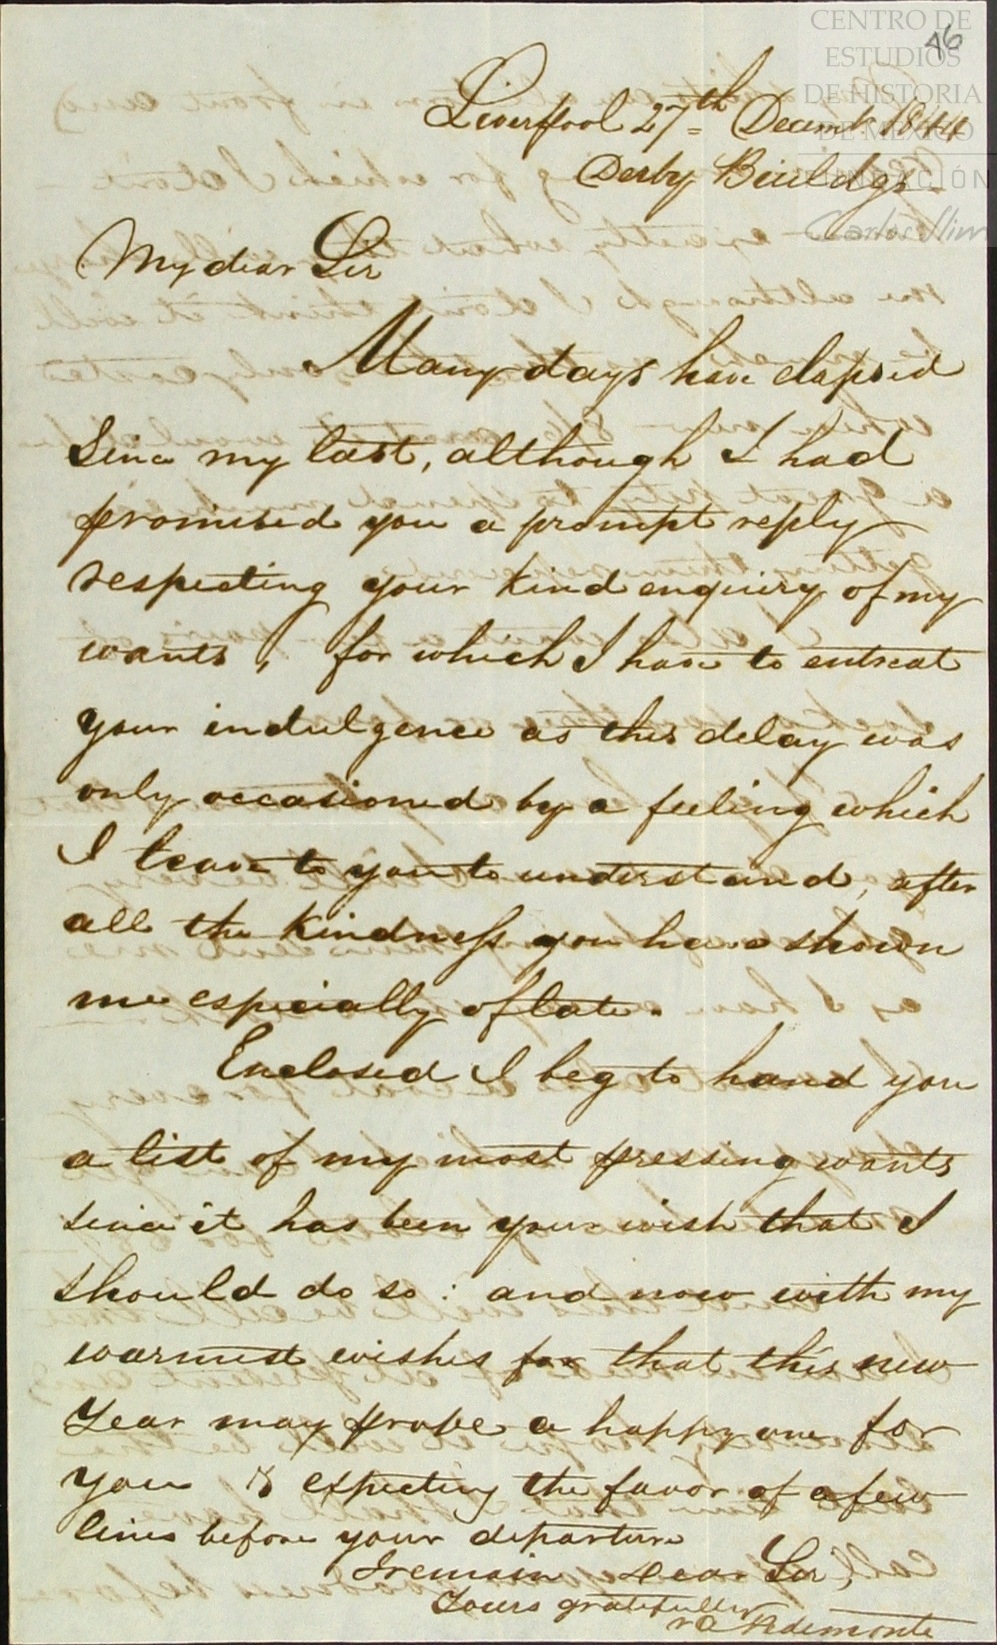 CENTRO DE
ESTUDIOS
DE HISTORIA
DE MÉXICO
FUNDACIÓN
Carlos Slim
46
Liverpool 27th Decemb. 1844
Derby Buildgs
My dear Sir
Many days have elapsed
since my last, although I had
promised you a prompt reply
respecting your kind enquiry of my
wants, for which I have to entreat
your indulgence as this delay was
only occasioned by a feeling which
I leave to you to understand, after
all the kindness you have shown
me especially of late.
Enclosed I beg to hand you
a list of my most pressing wants
since it has been your wish that I
should do so: and now with my
warmest wishes for that this new
Year may prove a happy one for
you & expecting the favor of a few
lines before your departure
I remain Dear Sir,
Yours gratefully
Pedemonte